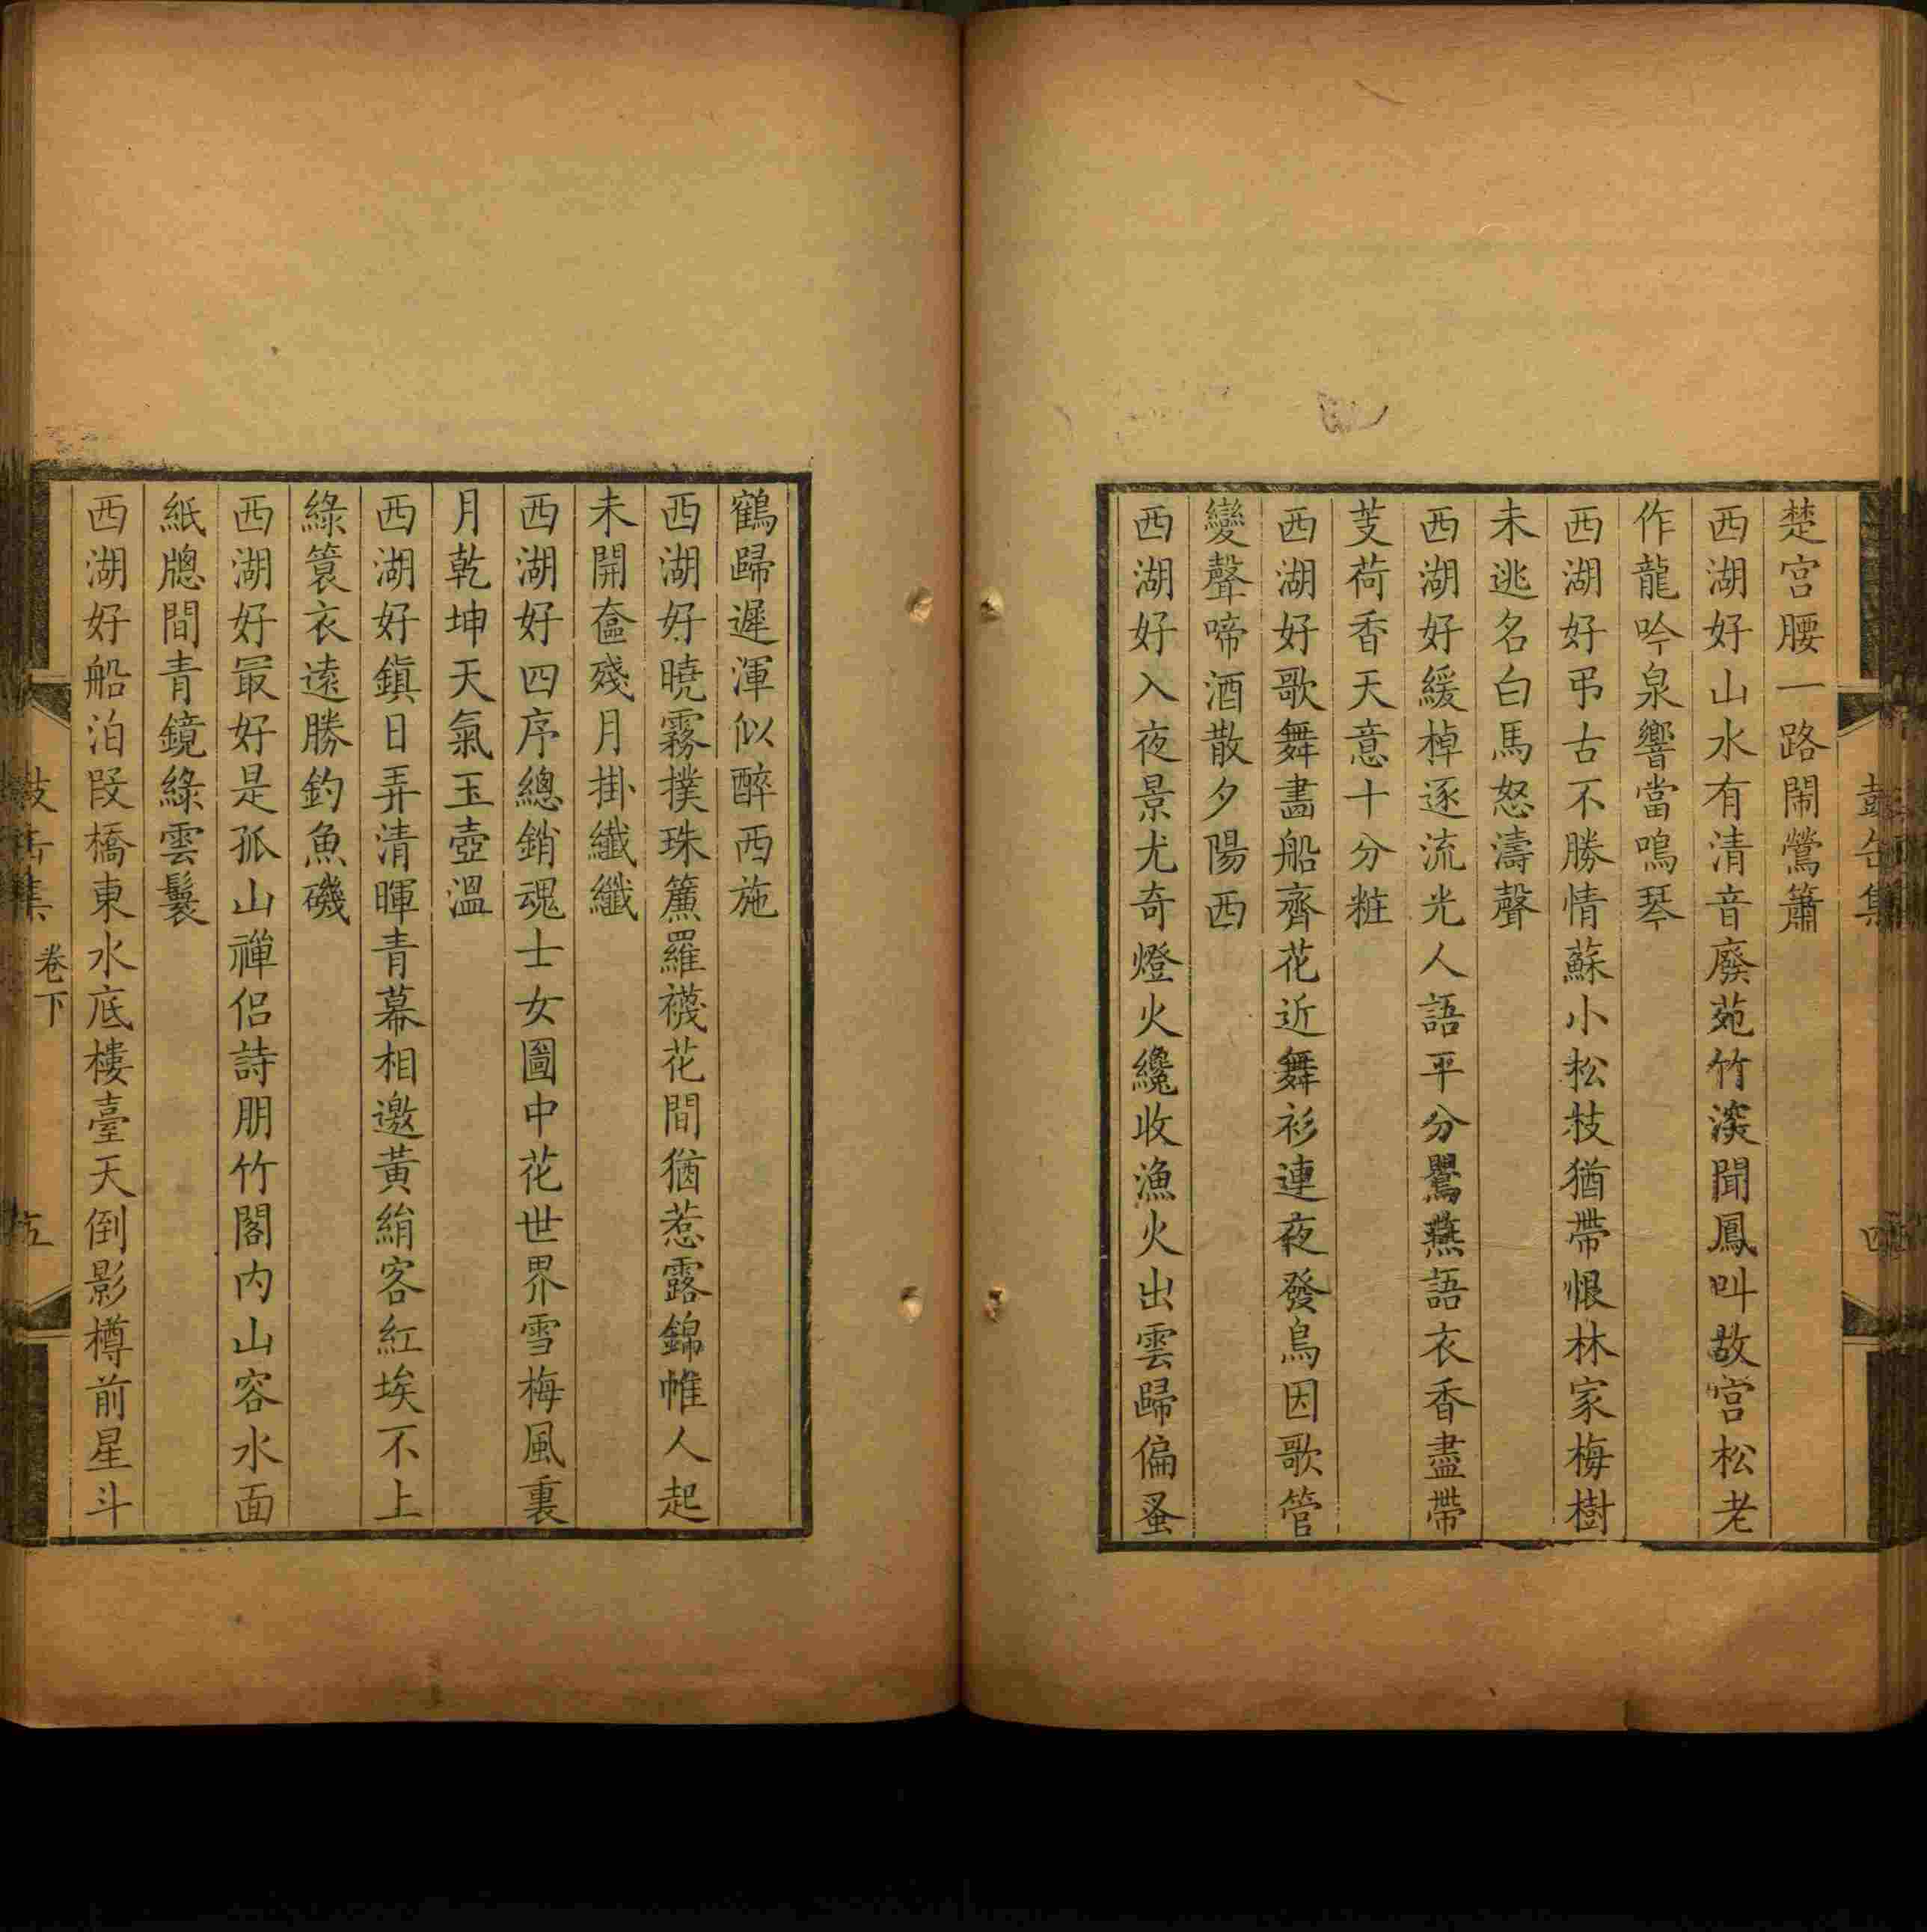 鼓缶集
四
楚宮腰一路鬧鶯簫
西湖好山水有清音廢苑竹深聞鳳叫故宮松老
作龍吟泉響當鳴琴
西湖好弔古不勝情蘇小松枝猶帶恨林家梅樹
未逃名白馬怒濤聲
西湖好緩棹逐流光人語平分鶯燕語衣香盡帶
芰荷香天意十分粧
西湖好歌舞畵船齊花近舞衫連夜發鳥因歌管
變聲啼酒散夕陽西
西湖好入夜景尤奇燈火纔收漁火出雲歸偏蚤
鶴歸遲渾似醉西施
西湖好曉霧撲珠簾羅襪花間猶惹露錦帷人起
未開奩殘月掛纖纖
西湖好四序總銷魂士女圖中花世界雪梅風裏
月乾坤天氣玉壺溫
西湖好鎮日弄清暉青幕相邀黃絹客紅埃不上
綠蓑衣遠勝釣魚磯
西湖好最好是孤山禪侶詩朋竹閣內山容水面
紙牕間青鏡綠雲鬟
西湖好船泊段橋東水底樓臺天倒影樽前星斗
鼓缶集
卷下
五